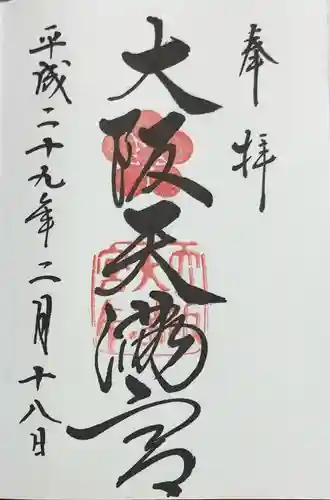 奉拝
大阪天満宮
平成二十九年二月十八日